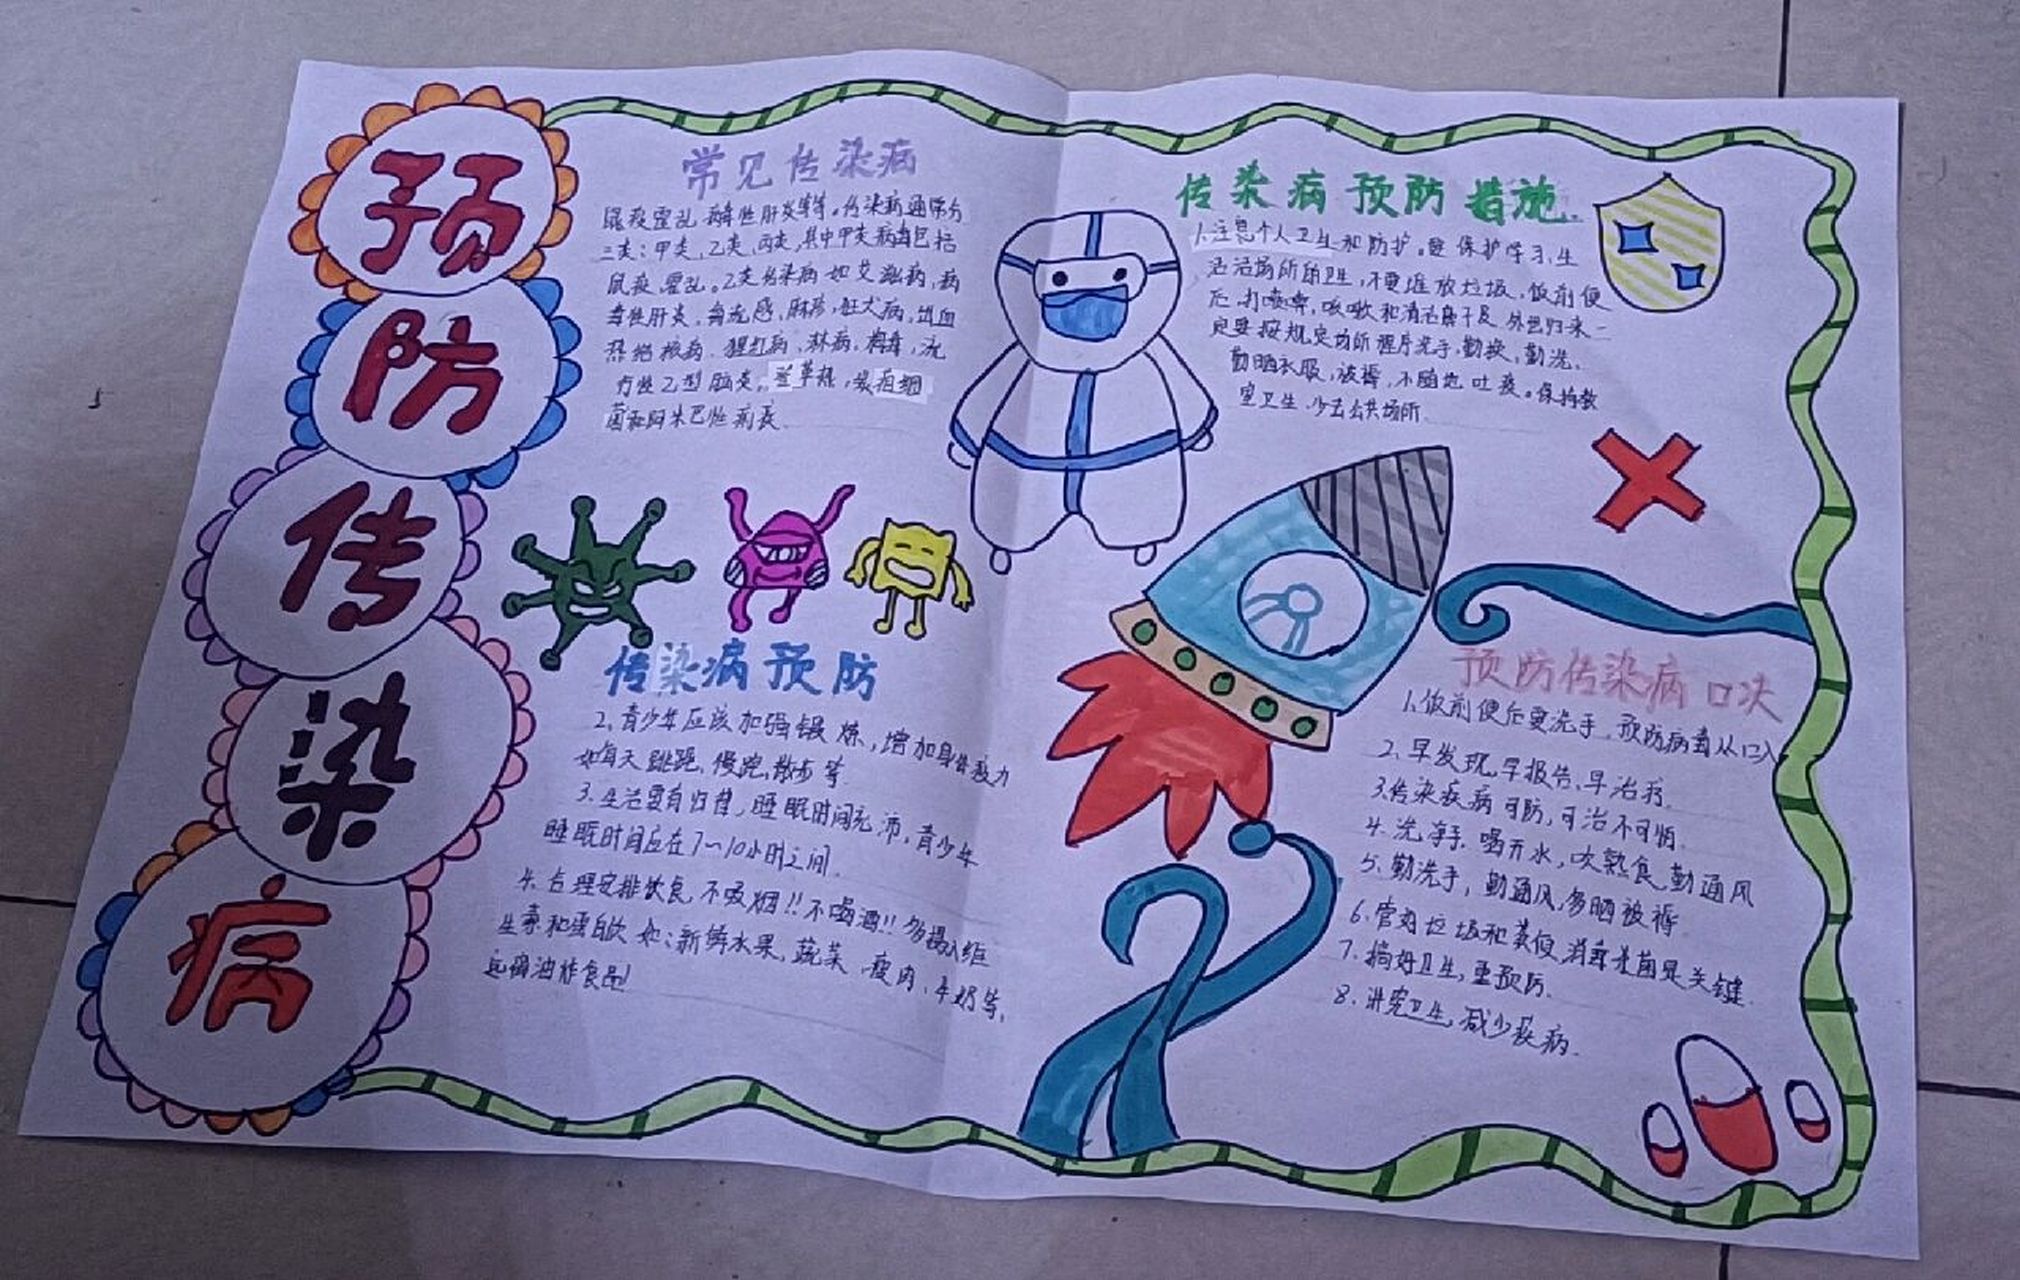 预
防
传
染
病
常见传染病
鼠疫霍乱 病毒性肝炎等等。传染病通常分
三类：甲类、乙类、丙类，其中甲类病毒包括
鼠疫、霍乱。乙类传染病如艾滋病，病
毒性肝炎，禽流感，麻疹，狂犬病，出血
热 结核病，猩红热，淋病，梅毒，流
行性乙型脑炎。登革热，炭疽细
菌和阿米巴性痢疾
传染病预防
2、青少年应该加强锻炼，增加身体
如每天跳跑、慢跑，散步等
3、生活要有归律，睡眠时间充沛，青少年
睡眠时间应在7～10小时之间.
4、合理安排饮食，不吸烟!!不喝酒!!多摄入维
生素和蛋白 如：新鲜水果，蔬菜、瘦肉、牛奶等，
远离油炸食品!
传染病预防措施.
1.注意个人卫生和防护。保护学习、生
活场所的卫生，不要堆放垃圾，饭前便
后，打喷嚏，咳嗽和清洁鼻子及 外出归来一
定要按规定场所程序洗手，勤换，勤洗、
勤晒衣服，被褥，不随地吐痰。保持教
室卫生 少去公共场所
预防传染病口决
1、饭前便后要洗手，预防病毒从口入
2、早发现，早报告，早治疗.
3、传染疾病可防，可治不可怕.
4、洗净手，喝开水，吃熟食，勤通风
5、勤洗手，勤通风，多晒被褥
6、管好垃圾和粪便，消毒杀菌是关键.
7、搞好卫生，重预防.
8、讲究卫生，减少疾病.